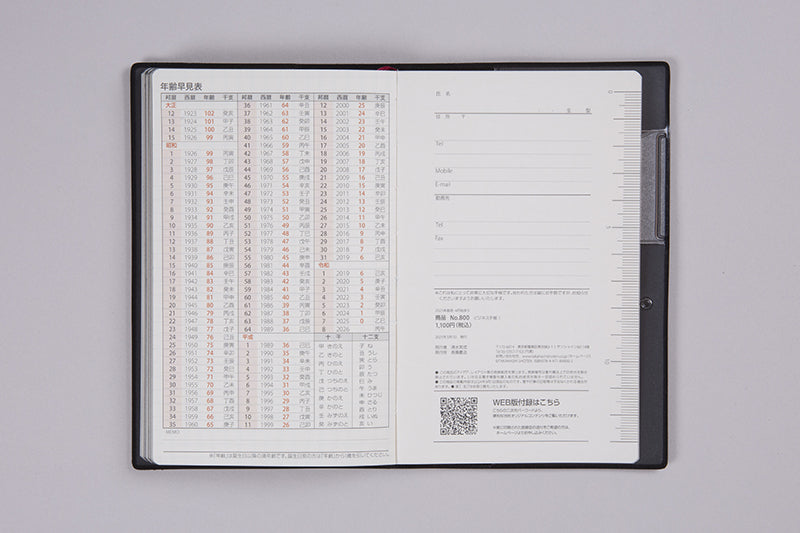 年齢早見表
邦暦 西暦 年齢 干支 邦暦 西暦 年齢 干支 邦暦 西暦 年齢 干支
大正 36 1961 64 辛丑 12 2000 25 庚辰
12 1923 102 癸亥 37 1962 63 壬寅 13 2001 24 辛巳
13 1924 101 甲子 38 1963 62 癸卯 14 2002 23 壬午
14 1925 100 乙丑 39 1964 61 甲辰 15 2003 22 癸未
15 1926 99 丙寅 40 1965 60 乙巳 16 2004 21 甲申
昭和 41 1966 59 丙午 17 2005 20 乙酉
1 1926 99 丙寅 42 1967 58 丁未 18 2006 19 丙戌
2 1927 98 丁卯 43 1968 57 戊申 19 2007 18 丁亥
3 1928 97 戊辰 44 1969 56 己酉 20 2008 17 戊子
4 1929 96 己巳 45 1970 55 庚戌 21 2009 16 己丑
5 1930 95 庚午 46 1971 54 辛亥 22 2010 15 庚寅
6 1931 94 辛未 47 1972 53 壬子 23 2011 14 辛卯
7 1932 93 壬申 48 1973 52 癸丑 24 2012 13 壬辰
8 1933 92 癸酉 49 1974 51 甲寅 25 2013 12 癸巳
9 1934 91 甲戌 50 1975 50 乙卯 26 2014 11 甲午
10 1935 90 乙亥 51 1976 49 丙辰 27 2015 10 乙未
11 1936 89 丙子 52 1977 48 丁巳 28 2016 9 丙申
12 1937 88 丁丑 53 1978 47 戊午 29 2017 8 丁酉
13 1938 87 戊寅 54 1979 46 己未 30 2018 7 戊戌
14 1939 86 己卯 55 1980 45 庚申 31 2019 6 己亥
15 1940 85 庚辰 56 1981 44 辛酉 令和
16 1941 84 辛巳 57 1982 43 壬戌 1 2019 6 己亥
17 1942 83 壬午 58 1983 42 癸亥 2 2020 5 庚子
18 1943 82 癸未 59 1984 41 甲子 3 2021 4 辛丑
19 1944 81 甲申 60 1985 40 乙丑 4 2022 3 壬寅
20 1945 80 乙酉 61 1986 39 丙寅 5 2023 2 癸卯
21 1946 79 丙戌 62 1987 38 丁卯 6 2024 1 甲辰
22 1947 78 丁亥 63 1988 37 戊辰 7 2025 0 乙巳
23 1948 77 戊子 64 1989 36 己巳 8 2026 丙午
24 1949 76 己丑 平成 十干 十二支
25 1950 75 庚寅 1 1989 36 己巳 甲 きのえ 子 ね
26 1951 74 辛卯 2 1990 35 庚午 乙 きのと 丑 うし
27 1952 73 壬辰 3 1991 34 辛未 丙 ひのえ 寅 とら
28 1953 72 癸巳 4 1992 33 壬申 丁 ひのと 卯 う
29 1954 71 甲午 5 1993 32 癸酉 戊 つちのえ 辰 たつ
30 1955 70 乙未 6 1994 31 甲戌 己 つちのと 巳 み
31 1956 69 丙申 7 1995 30 乙亥 庚 かのえ 午 うま
32 1957 68 丁酉 8 1996 29 丙子 辛 かのと 未 ひつじ
33 1958 67 戊戌 9 1997 28 丁丑 壬 みずのえ 申 さる
34 1959 66 己亥 10 1998 27 戊寅 癸 みずのと 酉 とり
35 1960 65 庚子 11 1999 26 己卯 戌 いぬ
亥 い
MEMO
※「年齢」は誕生日以降の満年齢です。誕生日前の方は「年齢」から1歳を引いてください。
氏 名
年 型
住 所 〒
Tel
Mobile
E-mail
勤務先
Tel
Fax
商品 No.800 ビジネス手帳
1,100円(税込)
WEB版付録はこちら
0
5
10